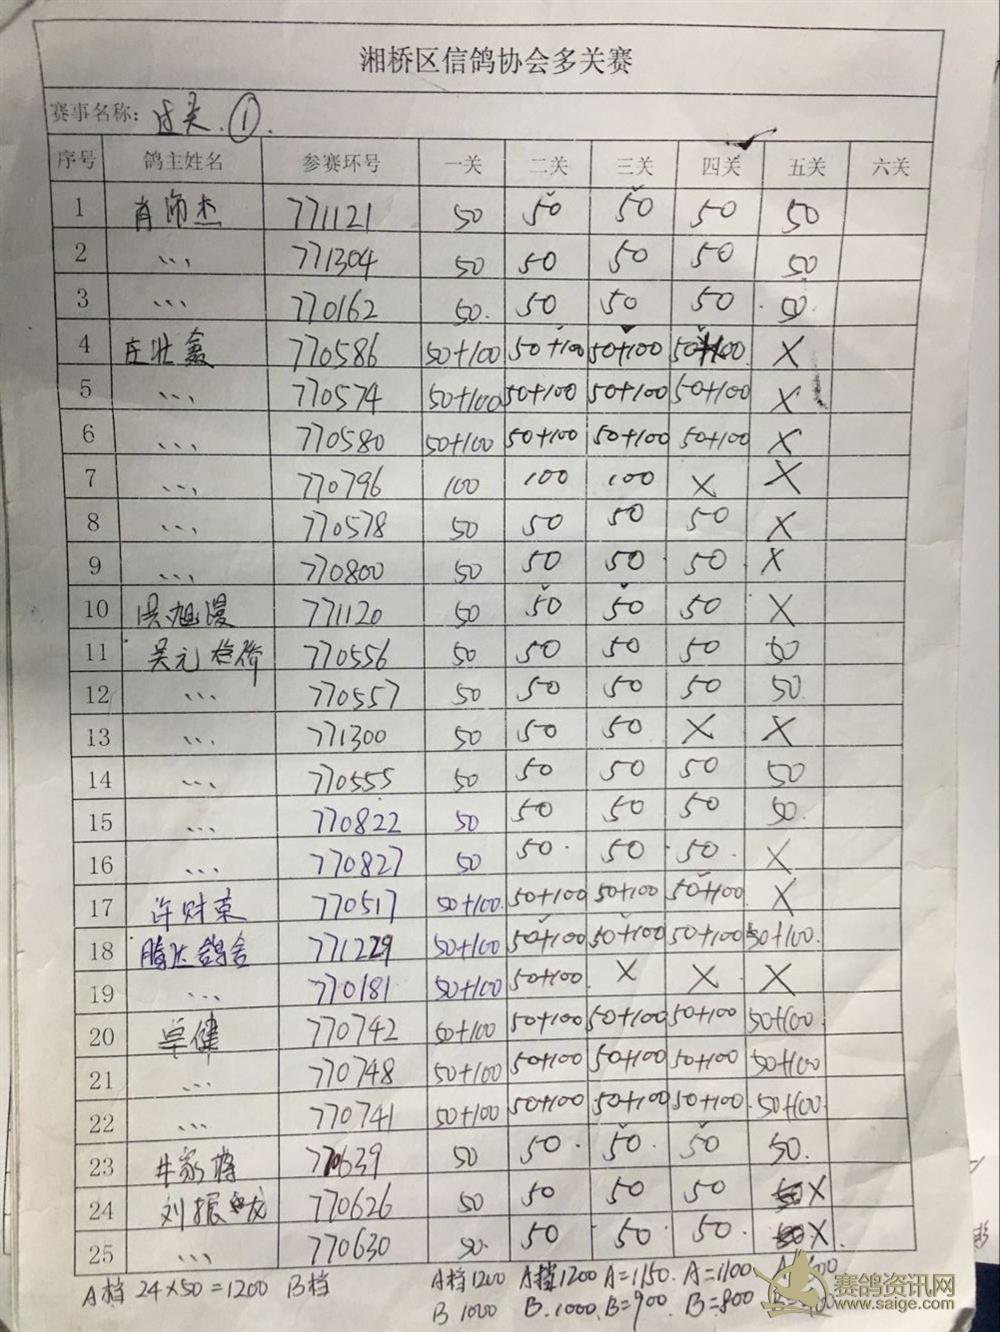 湘桥区信鸽协会多关赛
赛事名称： 过关.①.
序号 鸽主姓名 参赛环号 一关 二关 三关 四关 五关 六关
1 肖沛杰 771121 50 50 50 50 50
2 〃 771304 50 50 50 50 50
3 〃 770162 50. 50 50 50 50
4 庄壮鑫 770586 50+100 50+100 50+100 50+100 X
5 〃 770574 50+100 50+100 50+100 50+100 X
6 〃 770580 50+100 50+100 50+100 50+100 X
7 〃 770796 100 100 100 X X
8 〃 770578 50 50 50 50 X
9 〃 770800 50 50 50 50 X
10 洪旭漫 771120 50 50 50 50 X
11 吴元 770556 50 50 50 50 50
12 〃 770557 50 50 50 50 50
13 〃 771300 50 50 50 X X
14 〃 770555 50 50 50 50 50
15 〃 770822 50 50 50 50 50.
16 〃 770827 50 50. 50 50. X
17 许财东 770517 50+100. 50+100 50+100 50+100 X
18 腾达鸽舍 771229 50+100 50+100 50+100 50+100 50+100.
19 〃 770181 50+100 50+100 X X X
20 卓健 770742 50+100 50+100 50+100 50+100 50+100
21 〃 770748 50+100 50+100 50+100 50+100 50+100
22 〃 770741 50+100 50+100 50+100 50+100 50+100
23 770639 50 50. 50. 50 50.
24 刘振龙 770626 50 50 50 50 X
25 〃 770630 50. 50 50 50. X
A档 24×50=1200 B档 A档1200 A档1200 A=1150. A=1100
B 1000 B.1000. B=900. B=800
赛鸽资讯网
www.saige.com